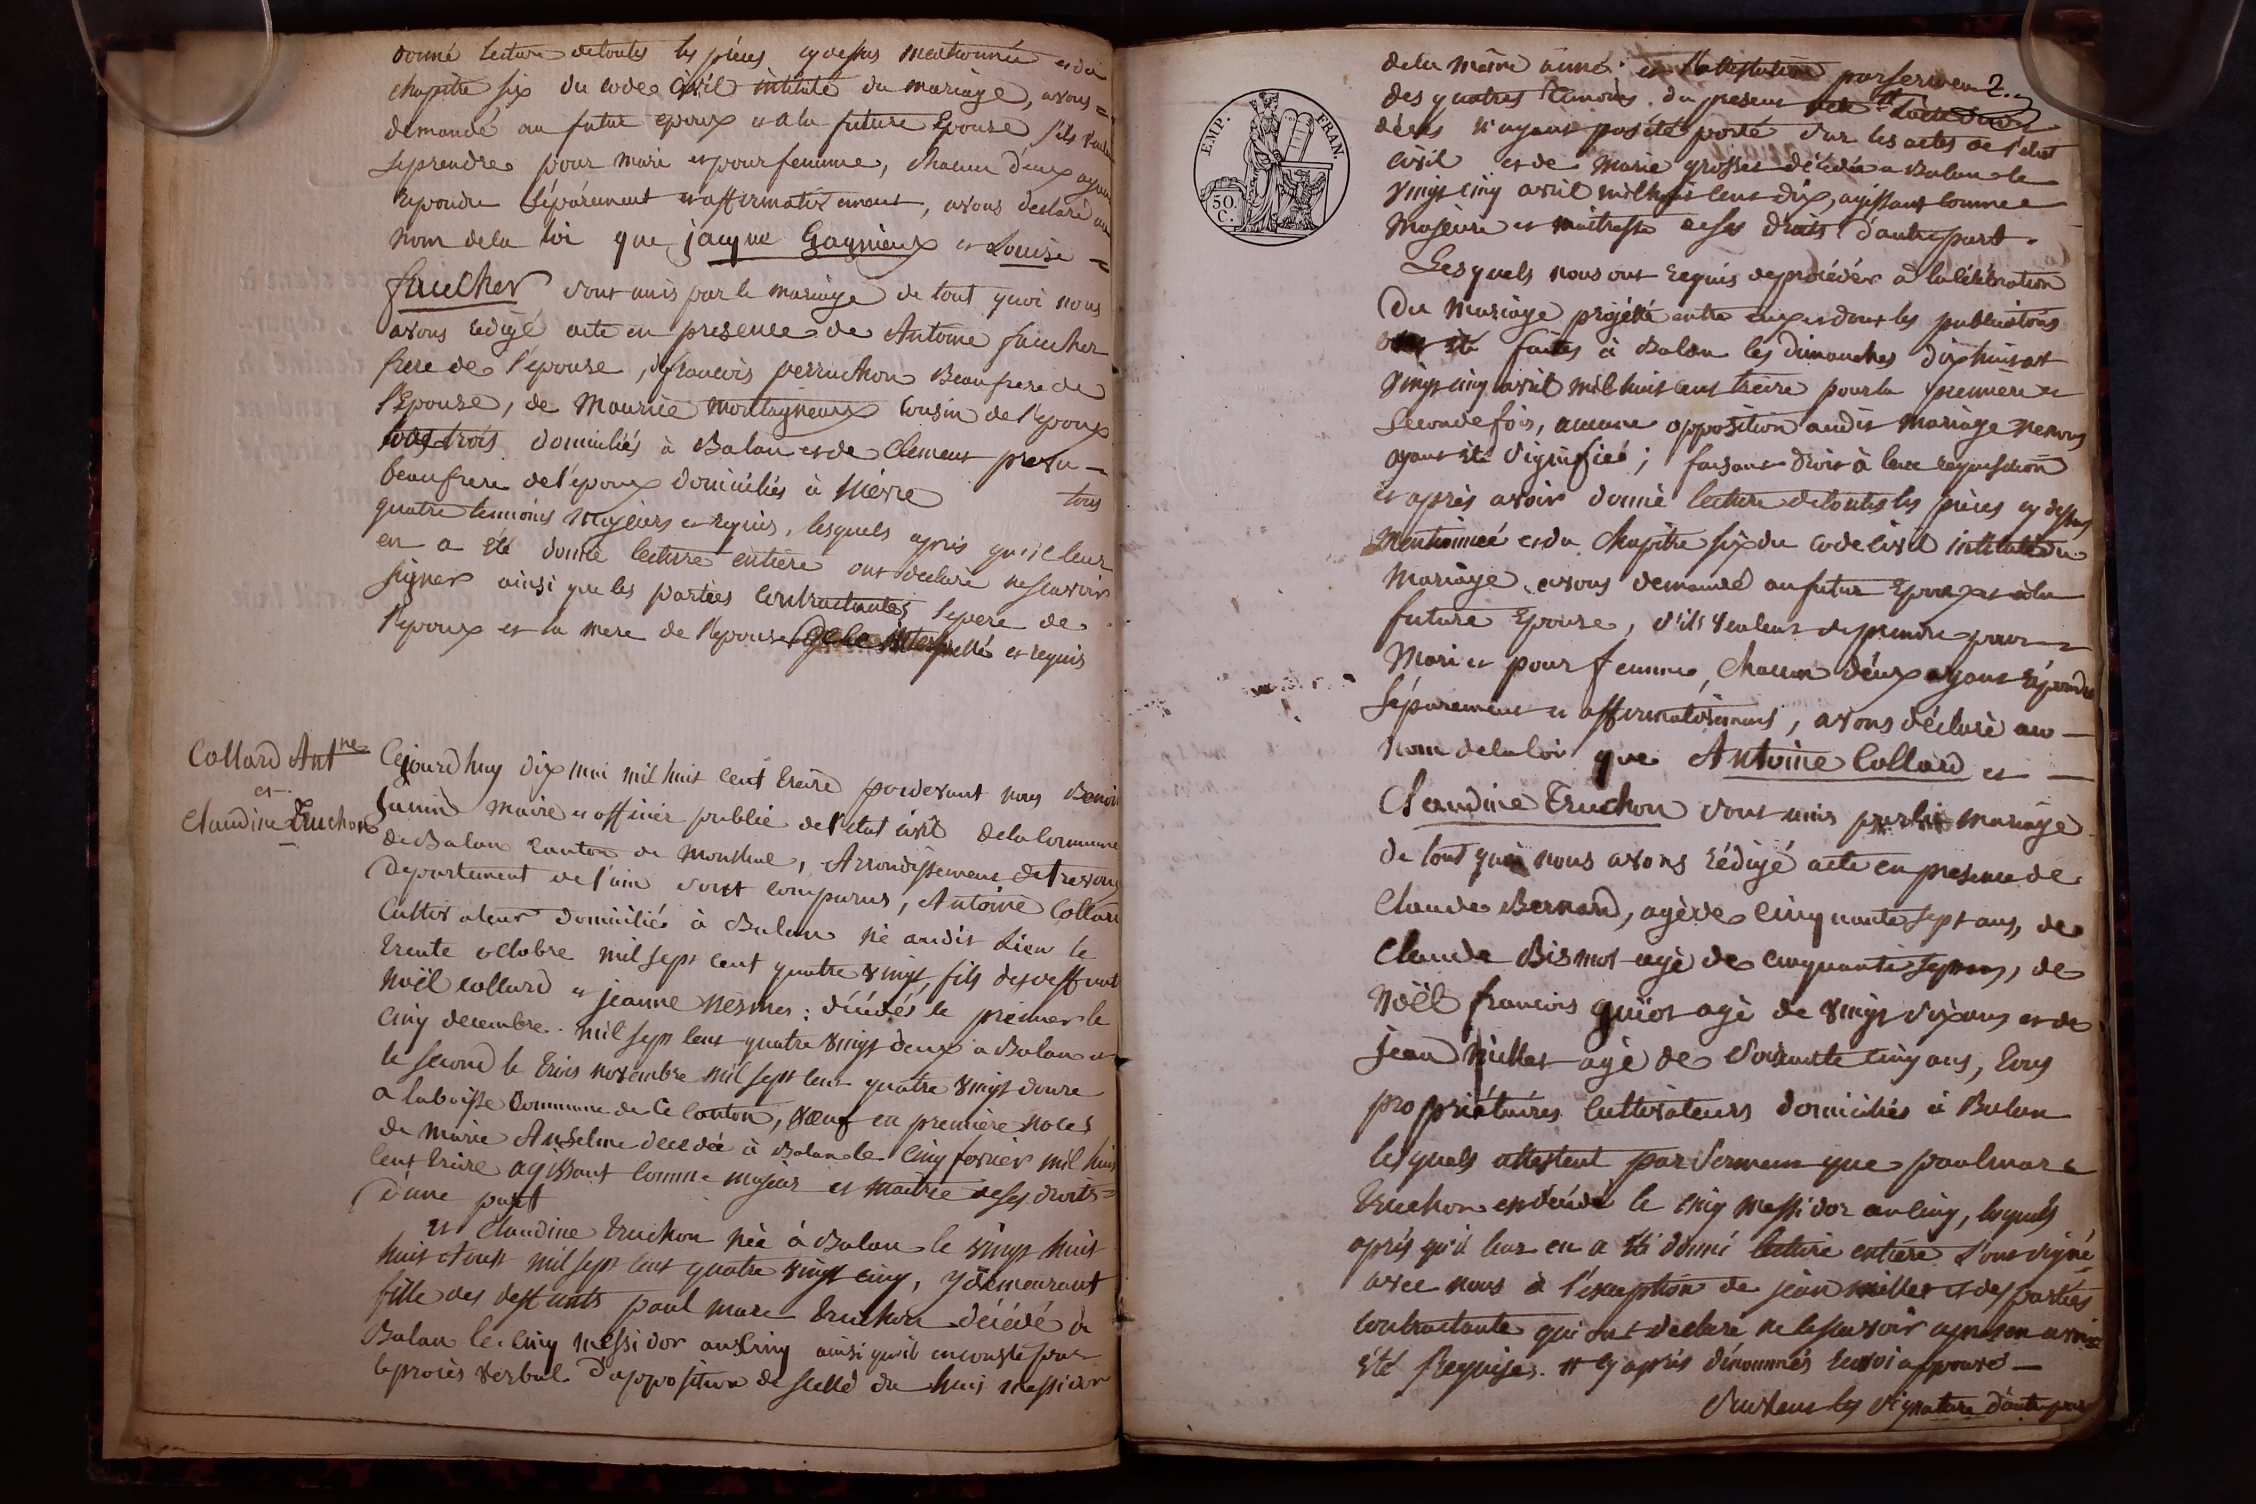 donné lecture de toutes les pièces cy dessus mentionnée et du
chapitre six du code Civil intitulé du mariage, avons =
demandé au futur epoux et a la future Epouse s'ils veulent
se prendre pour mari et pour femme, chacun d'eux ayant
repondu séparément et affirmativement, avons declaré au
nom de la loi que jacque Gagnieux et Louise =
faucher sont unis par le mariage de tout quoi nous
avons rédigé acte en presence de Antoine faucher
frere de l'epouse, de francois perruchon Beaufrere de
l'Epouse, de Maurice Montagneux cousin de l'epoux
trois domiciliés à Balan et de Clement
beaufrere de l'époux domiciliés à Nièvre tous
quatre temoins majeurs et requis, lesquels après qu'il leur
en a été donné lecture entière ont declaré ne scavoir
signer ainsi que les parties contractantes le pere de
l'epoux et la mere de l'epouse et requis
Collard Antne
et
Claudine Truchon
Cejourdhuy dix mai mil huit cent treize pardevant nous Benoit
Jamin maire et officier public de l'etat civil de la commune
de Balan canton de Montluel, Arrondissement de trevoux
Departement de l'ain sont comparus, Antoine Collard
Cultivateur domicilié à Balan né audit Lieu le
trente octobre mil sept cent quatre vingt, fils des deffunt
Noël collard et jeanne Nesmes : décédés le premier le
cinq decembre mil sept cent quatre vingt deux a Balan et
le second le trois novembre mil sept cent quatre vingt douze
a laboisse commune de ce canton, veuf en première noces
de Marie Anselme decedée à Balan le cinq fevrier mil huit
cent treize agissant comme majeur et maître de ses droits =
d'une part
et Claudine truchon née à Balan le vingt huit
huit Aoust mil sept cent quatre vingt cinq, y demeurant
fille des deffunts paul marc truchon décédé à
Balan le cinq messidor an cinq ainsi qu'il en conste par
le procès verbal d'apposition de scellé du huit messidor
2.
EMP. FRAN.
50. C.
de la même année et l'attestation par serment
des quatres témoins du present acte
décès n'ayant pas été porté sur les actes de l'etat
civil et de Marie grosset décédée a Balan le
vingt cinq avril mil huit cent dix, agissant comme
Majeure et maitresse de ses droits d'autre part.
Lesquels nous ont requis de procéder à la célébration
du Mariage projétté entre eux et dont les publications
ont été faites à Balan les dimanches dix huit et
vingt cinq avril mil huit cent treize pour la premiere et
Seconde fois, aucune opposition audit mariage ne nous
ayant été signifiée ; faisant droit à leur requisition
et après avoir donné lecture de toutes les pièces cy dessus
mentionnée et du Chapitre six du code civil intitulé du
Mariage avons demandé au futur Epoux et a la
future Epouse, s'ils veulent se prendre pour
Mari et pour femme, chacun d'eux ayant répondu
séparement et affirmativement, avons déclaré au
nom de la loi que Antoine Collard et
Claudine Truchon sont unis par le mariage
de tout quoi nous avons rédigé acte en presence de
Claude Bernard, agé de cinquante sept ans, de
Claude Bismot agé de cinquante sept ans, de
Noël francois guiot agé de vingt six ans et de
jean millet agé de soixante cinq ans, tous
propriétaires cultivateurs domiciliés à Balan
lesquels attestent par serment que paul marc
truchon est décédé le cinq messidor an cinq, lesquels
après qu'il leur en a été donné lecture entière l'ont signé
avec nous à l'exception de jean millet et des parties
contractante qui ont declaré ne le scavoir apres en avoir
été Requises. cy après dénommés renvoi approuvé
Suivent les signature d'autre part